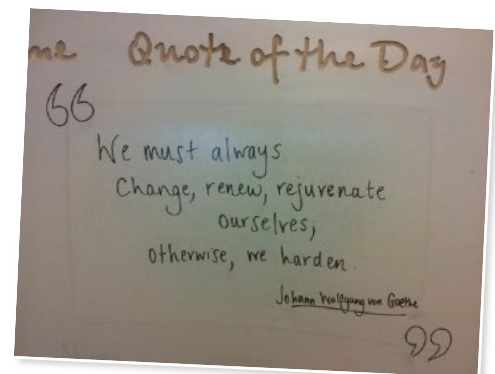 me Quote of the Day
“
We must always
Change, renew, rejuvenate
ourselves,
otherwise, we harden.
Johann Wolfgang von Goethe
”